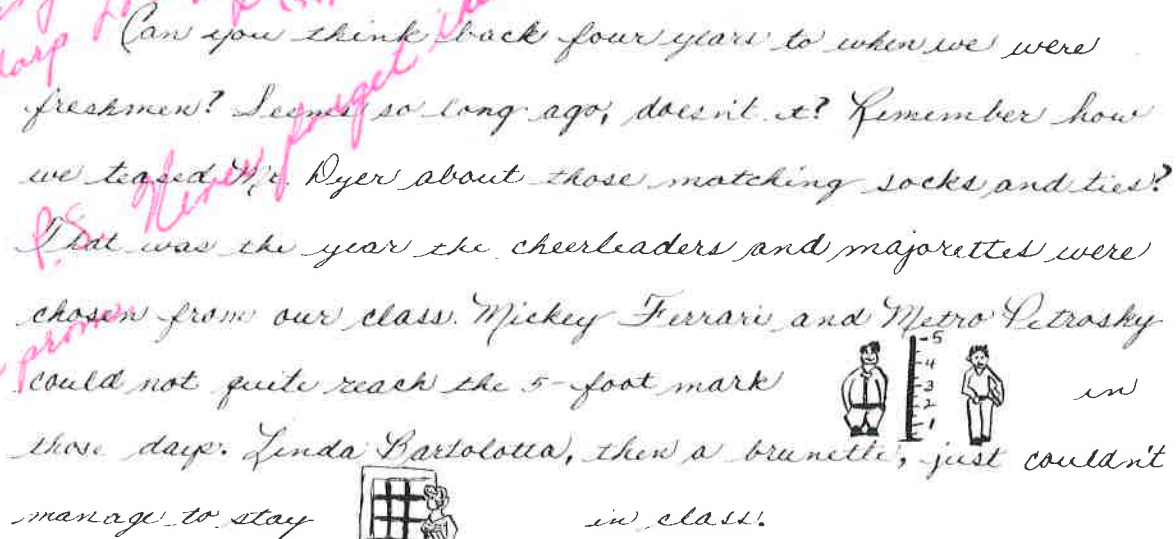 Can you think back four years to when we were
freshmen? Seems so long ago, doesn't it? Remember how
we teased Mr. Dyer about those matching socks and ties?
That was the year the cheerleaders and majorettes were
chosen from our class. Mickey Ferrari and Metro Petrosky
could not quite reach the 5-foot mark in
5
4
3
2
1
those days. Linda Bartolotta, then a brunette, just couldn't
manage to stay in class.
P.S. Never forget the
prom